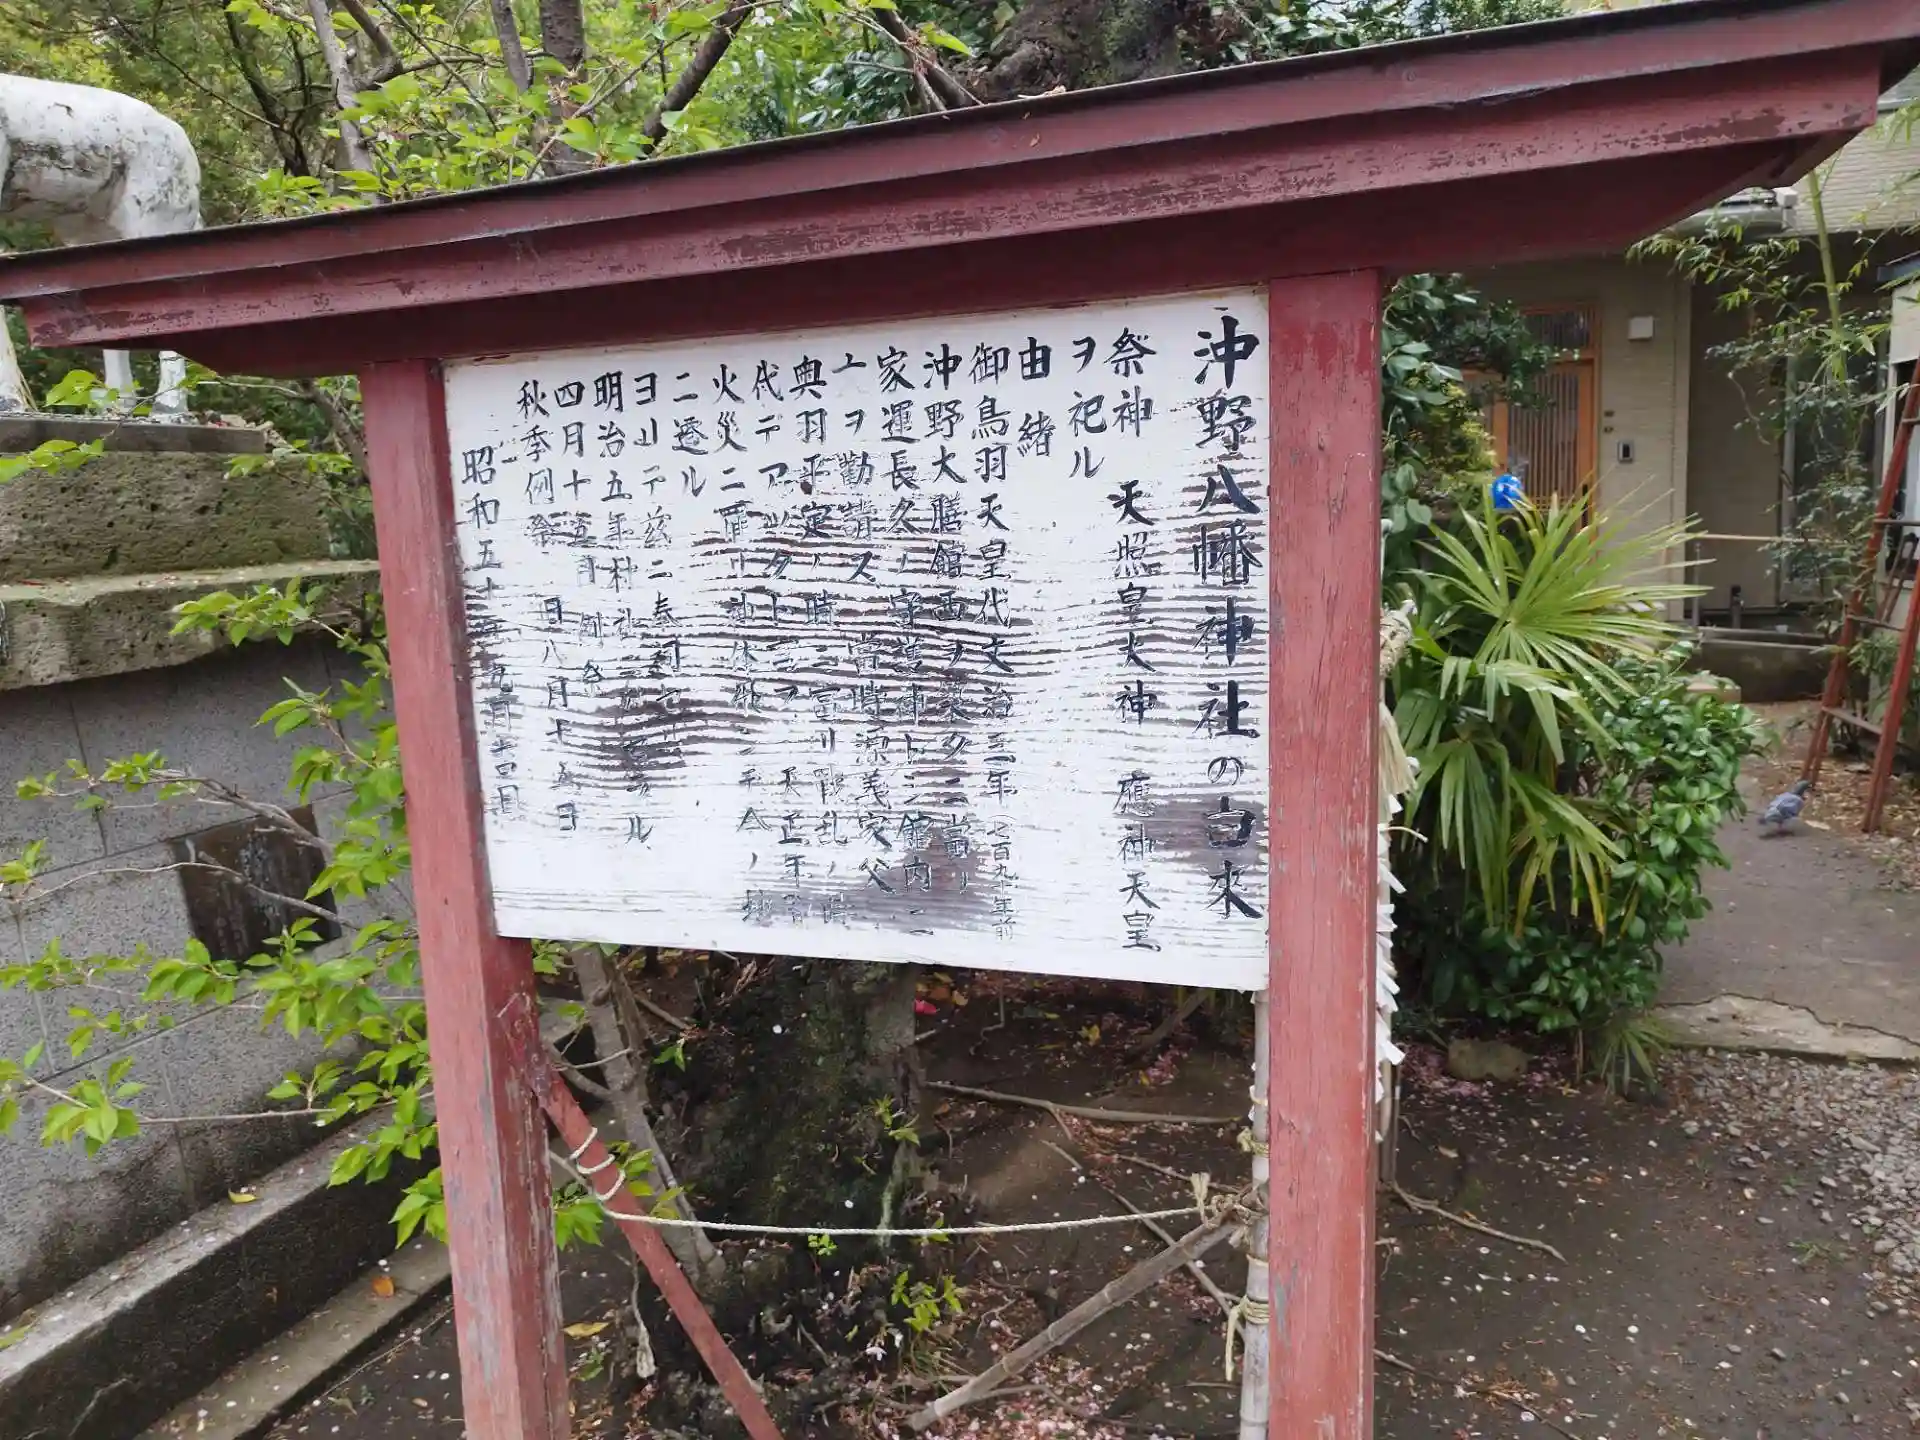 沖野八幡神社の由来
祭神 天照皇大神 應神天皇
ヲ祀ル
由緒
御鳥羽天皇代文治三年(七百九十年前
沖野大膳館西ヲ築クニ當リ
家運長久ノ守護神トシ館内ニ
ヲ勸請ス 當時源義家父
奥羽平定ノ時ニ冨リ 乱ノ
代デアッタト云フ 天正年
火災ニ罹リ 体 今ノ地
ニ遷ル
ヨリテ茲ニ奉
明治五年村社
四月十五日 例祭
秋季例祭 八月十五日
昭和五十 九月